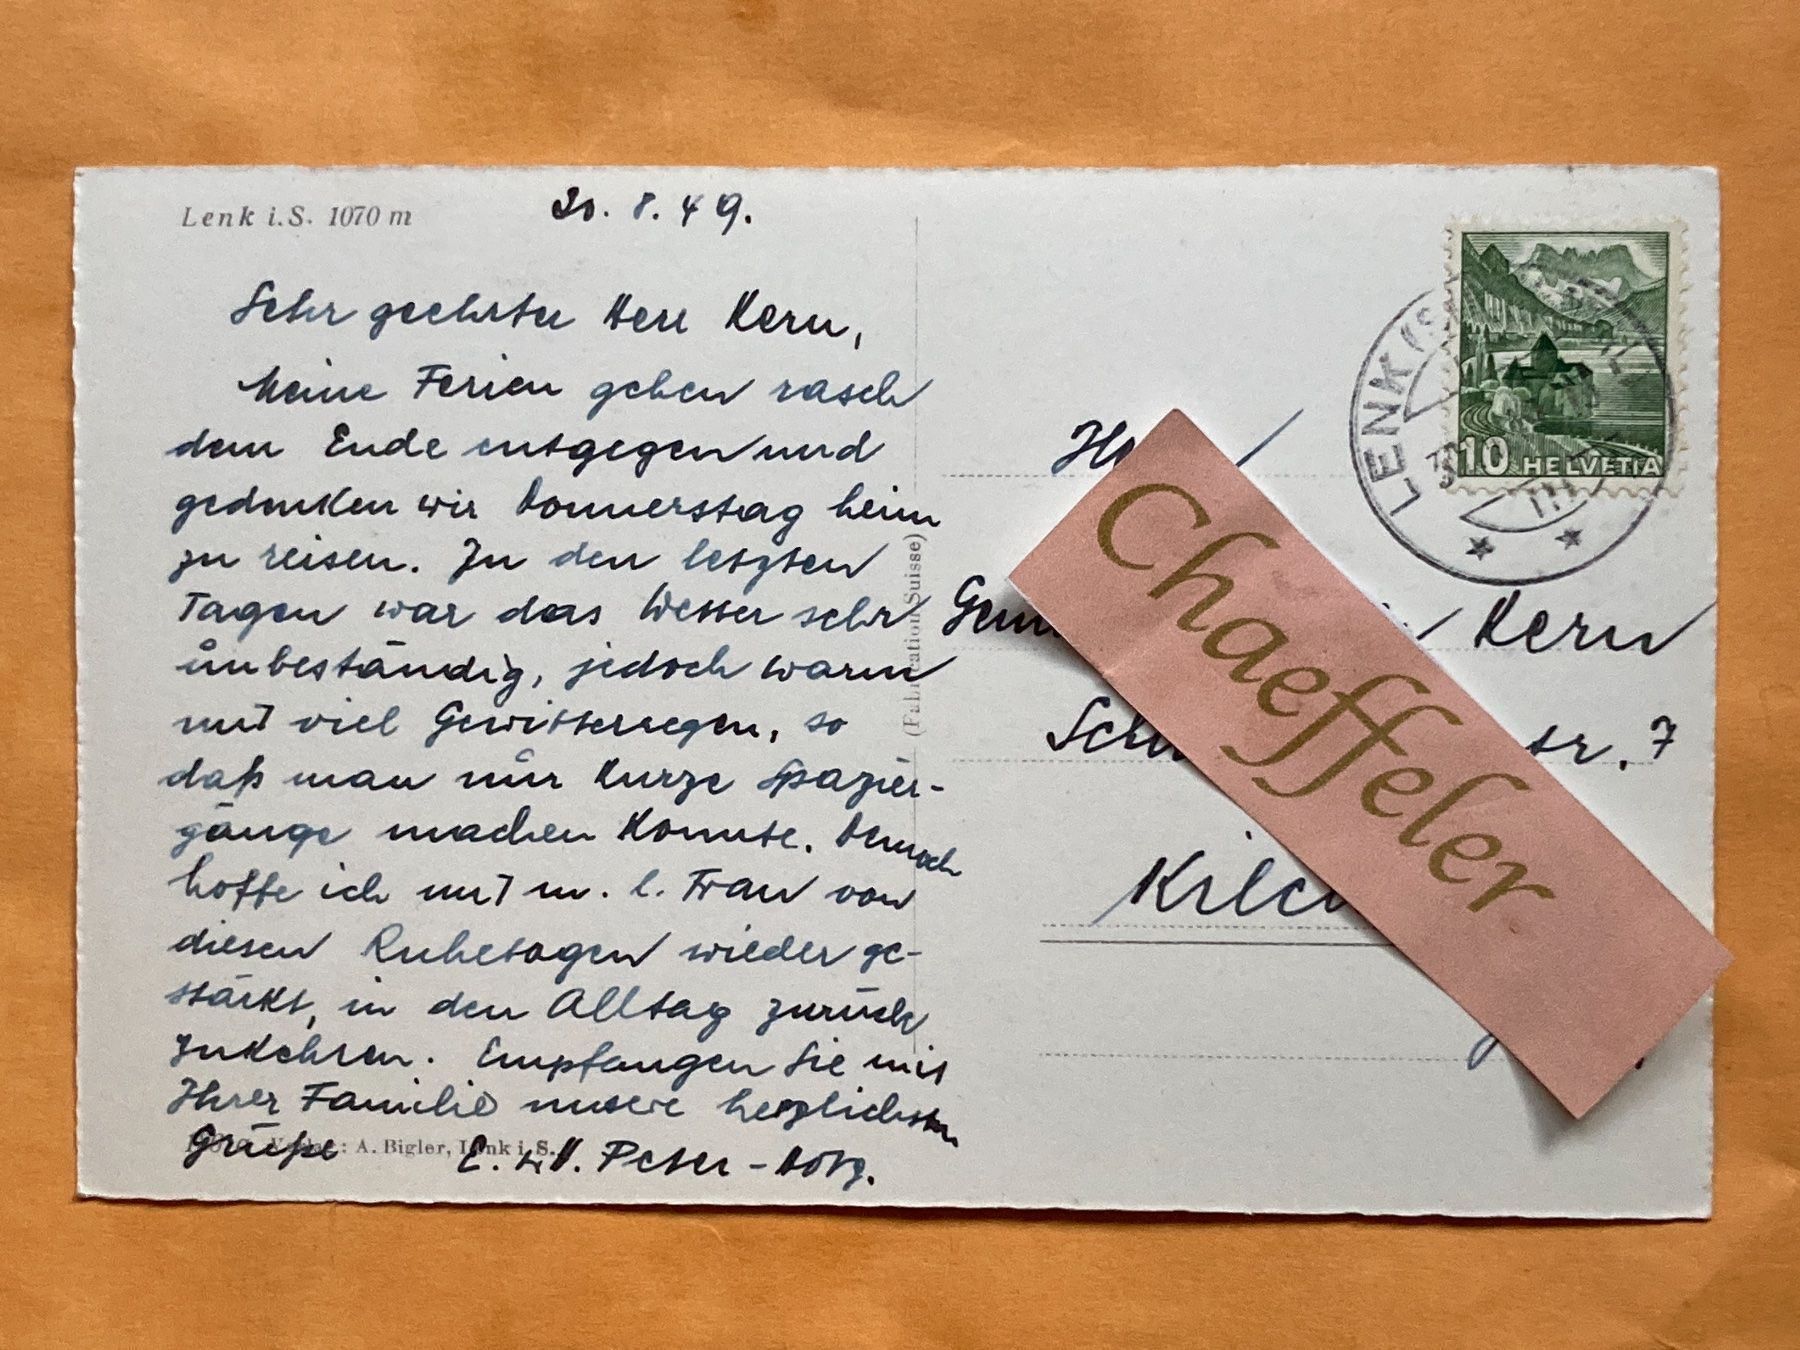 Lenk i. S. 1070 m
30. 8. 49.
Sehr geehrter Herr Kern,
Meine Ferien gehen rasch
dem Ende entgegen und
gedenken wir Donnerstag heim
zu reisen. In den letzten
Tagen war das Wetter sehr
unbeständig, jedoch warm
mit viel Gewitterregen, so
daß man nur kurze Spazier-
gänge machen konnte. Dennoch
hoffe ich mit m. l. Frau von
diesen Ruhetagen wieder ge-
stärkt, in den Alltag zurück
zukehren. Empfangen Sie mit
Ihrer Familie unsere herzlichsten
Grüße E. u. H. Peter-
: A. Bigler, Lenk i. S.
(Fabrication Suisse)
LENK
10 HELVETIA
Kern
str. 7
Chaeffeler